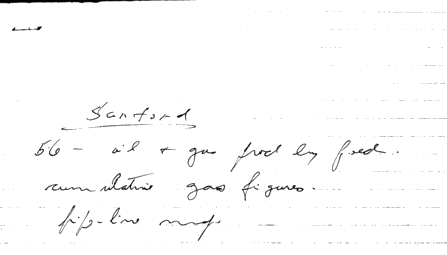 Sanford
56 - oil + gas prod by field.
cumulative gas figures.
pip-line map